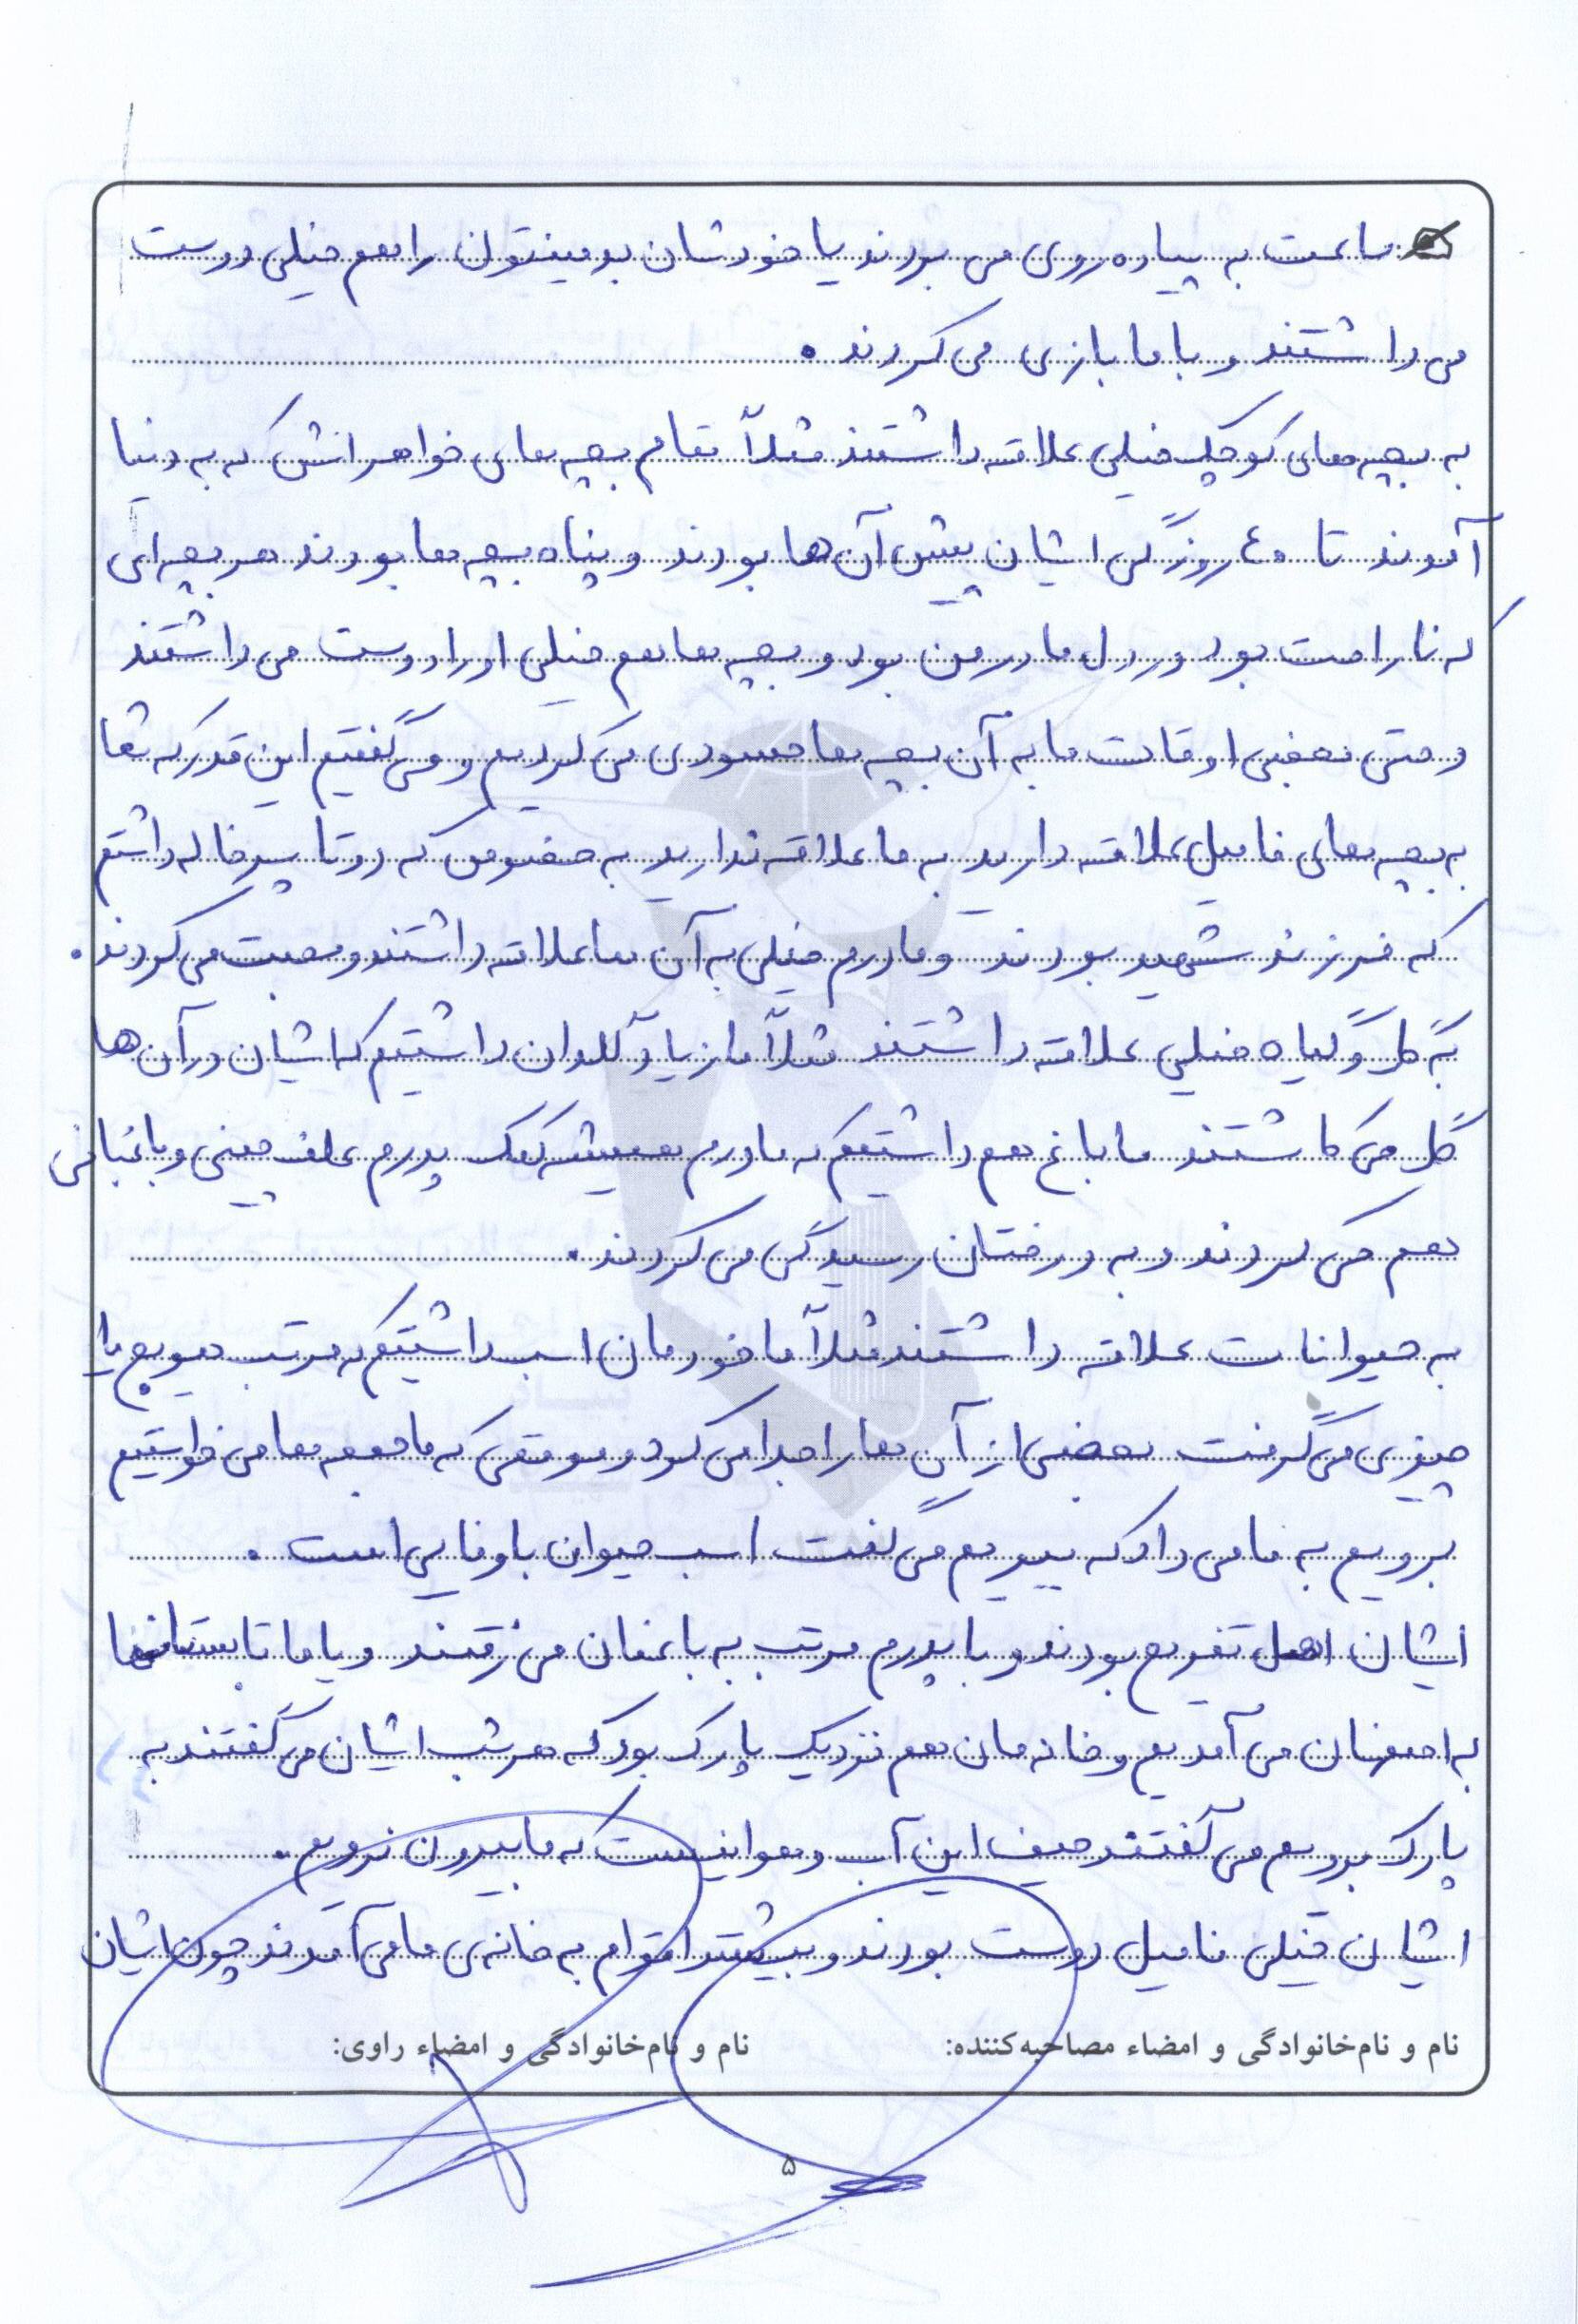 ساعت به پیاده روی می بردند یا خودشان بدمینتون را هم خیلی دوست
می داشتند و با ما بازی می کردند .
به بچه های کوچک خیلی علاقه داشتند مثلاً تمام بچه های خواهرانش که به دنیا
آمدند تا ۴۰ روزگی ایشان پیش آن ها بودند و پناه بچه ها بودند هر بچه ای
که ناراحت بود ور دل مادر من بود و بچه ها هم خیلی او را دوست می داشتند
و حتی بعضی اوقات ما به آن بچه ها حسودی می کردیم و می گفتیم این قدر که شما
به بچه های فامیل علاقه دارید به ما علاقه ندارید به خصوص که دو تا پسرخاله داشتم
که فرزند شهید بودند و مادرم خیلی به آن ها علاقه داشتند و محبت می کردند .
به گل و گیاه خیلی علاقه داشتند مثلاً ما زیاد گلدان داشتیم که ایشان در آن ها
گل می کاشتند ما باغ هم داشتیم که مادرم همیشه کمک پدرم علف چینی و باغبانی
هم می کردند و به درختان رسیدگی می کردند .
به حیوانات علاقه داشتند مثلاً ما خودمان اسب داشتیم که مرتب هویج یا
چیزی می گرفت بعضی از آن ها را جدا می کرد و موقعی که ما جمعه ها می خواستیم
برویم به ما می داد که ببریم می گفت اسب حیوان باوفایی است .
ایشان اهل تفریح بودند و با پدرم مرتب به باغمان می رفتند و یا ما تابستان ها
به اصفهان می آمدیم و خانه مان هم نزدیک پارک بود که هر شب ایشان می گفتند به
پارک برویم می گفتند حیف این آب و هوا نیست که ما بیرون نرویم .
ایشان خیلی فامیل دوست بودند و بیشتر اقوام به خانه ی ما می آمدند چون ایشان
نام و نام خانوادگی و امضاء مصاحبه کننده: نام و نام خانوادگی و امضاء راوی:
۵